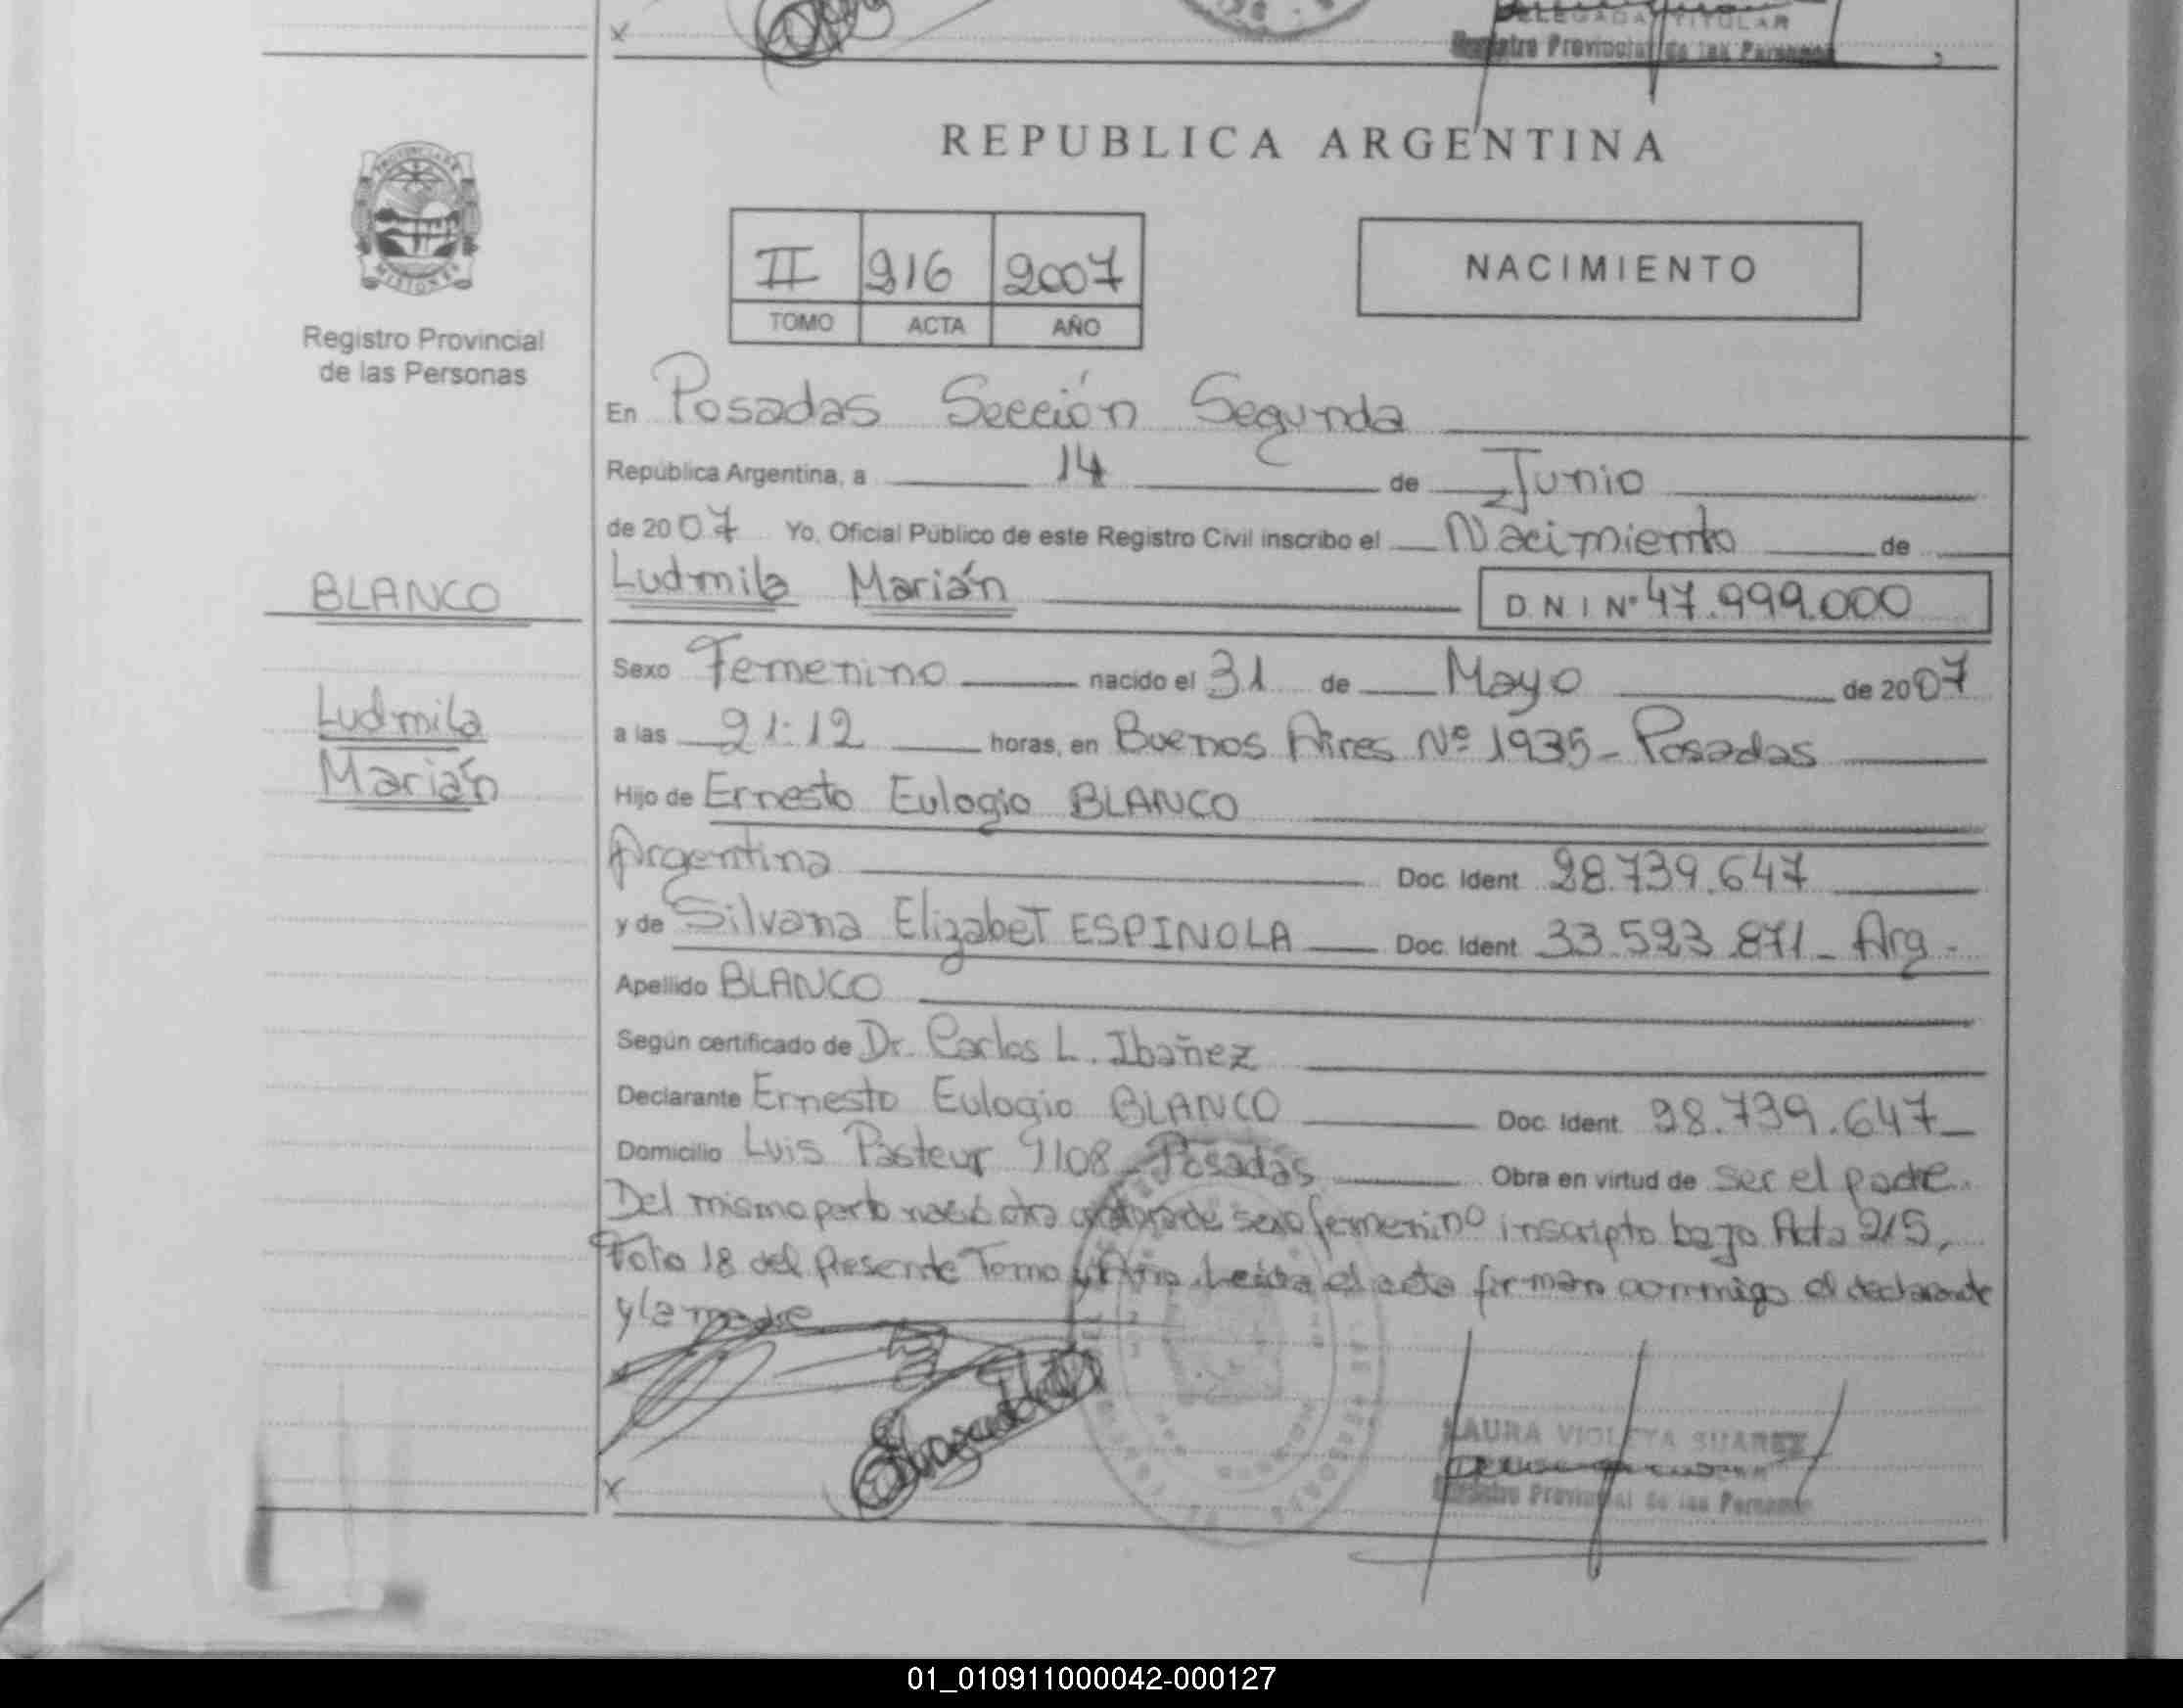 x
DELEGADA TITULAR
Registro Provincial de las Personas
REPUBLICA ARGENTINA
PROVINCIA DE
MISIONES
II 216 2007
TOMO ACTA AÑO
NACIMIENTO
Registro Provincial
de las Personas
En Posadas Sección Segunda
República Argentina, a 14 de Junio
de 2007 Yo, Oficial Público de este Registro Civil inscribo el Nacimiento de
BLANCO
Ludmila Marián D.N.I Nº 47.999.000
Sexo Femenino nacido el 31 de Mayo de 2007
Ludmila
Marián
a las 21:12 horas, en Buenos Aires Nº 1935 - Posadas
Hijo de Ernesto Eulogio BLANCO
Argentina Doc. Ident. 28.739.647
y de Silvana Elizabet ESPINOLA Doc. Ident. 33.523.871 - Arg -
Apellido BLANCO
Según certificado de Dr. Carlos L. Ibañez
Declarante Ernesto Eulogio BLANCO Doc. Ident. 28.739.647
Domicilio Luis Pasteur 9108 - Posadas Obra en virtud de ser el padre.
Del mismo parto nació otra de sexo femenino inscripto bajo Acta 215,
Folio 18 del Presente Tomo y Año. Leída el acta firman conmigo el declarante
y la madre
LAURA VIOLETA SUAREZ
Registro Provincial de las Personas
x
01_010911000042-000127